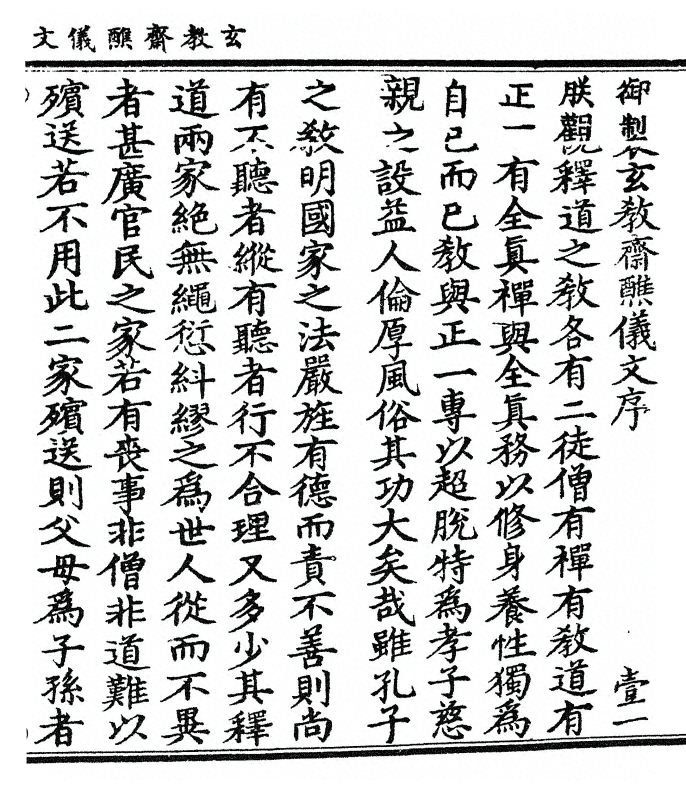 玄教齋醮儀文
御製玄教齋醮儀文序 壹一
朕觀釋道之教各有二徒僧有禪有教道有
正一有全眞禪與全眞務以修身養性獨爲
自己而已教與正一專以超脫特爲孝子慈
親之設益人倫厚風俗其功大矣哉雖孔子
之教明國家之法嚴旌有德而責不善則尚
有不聽者縱有聽者行不合理又多少其釋
道兩家絕無繩愆糾繆之爲世人從而不異
者甚廣官民之家若有喪事非僧非道難以
殯送若不用此二家殯送則父母爲子孫者